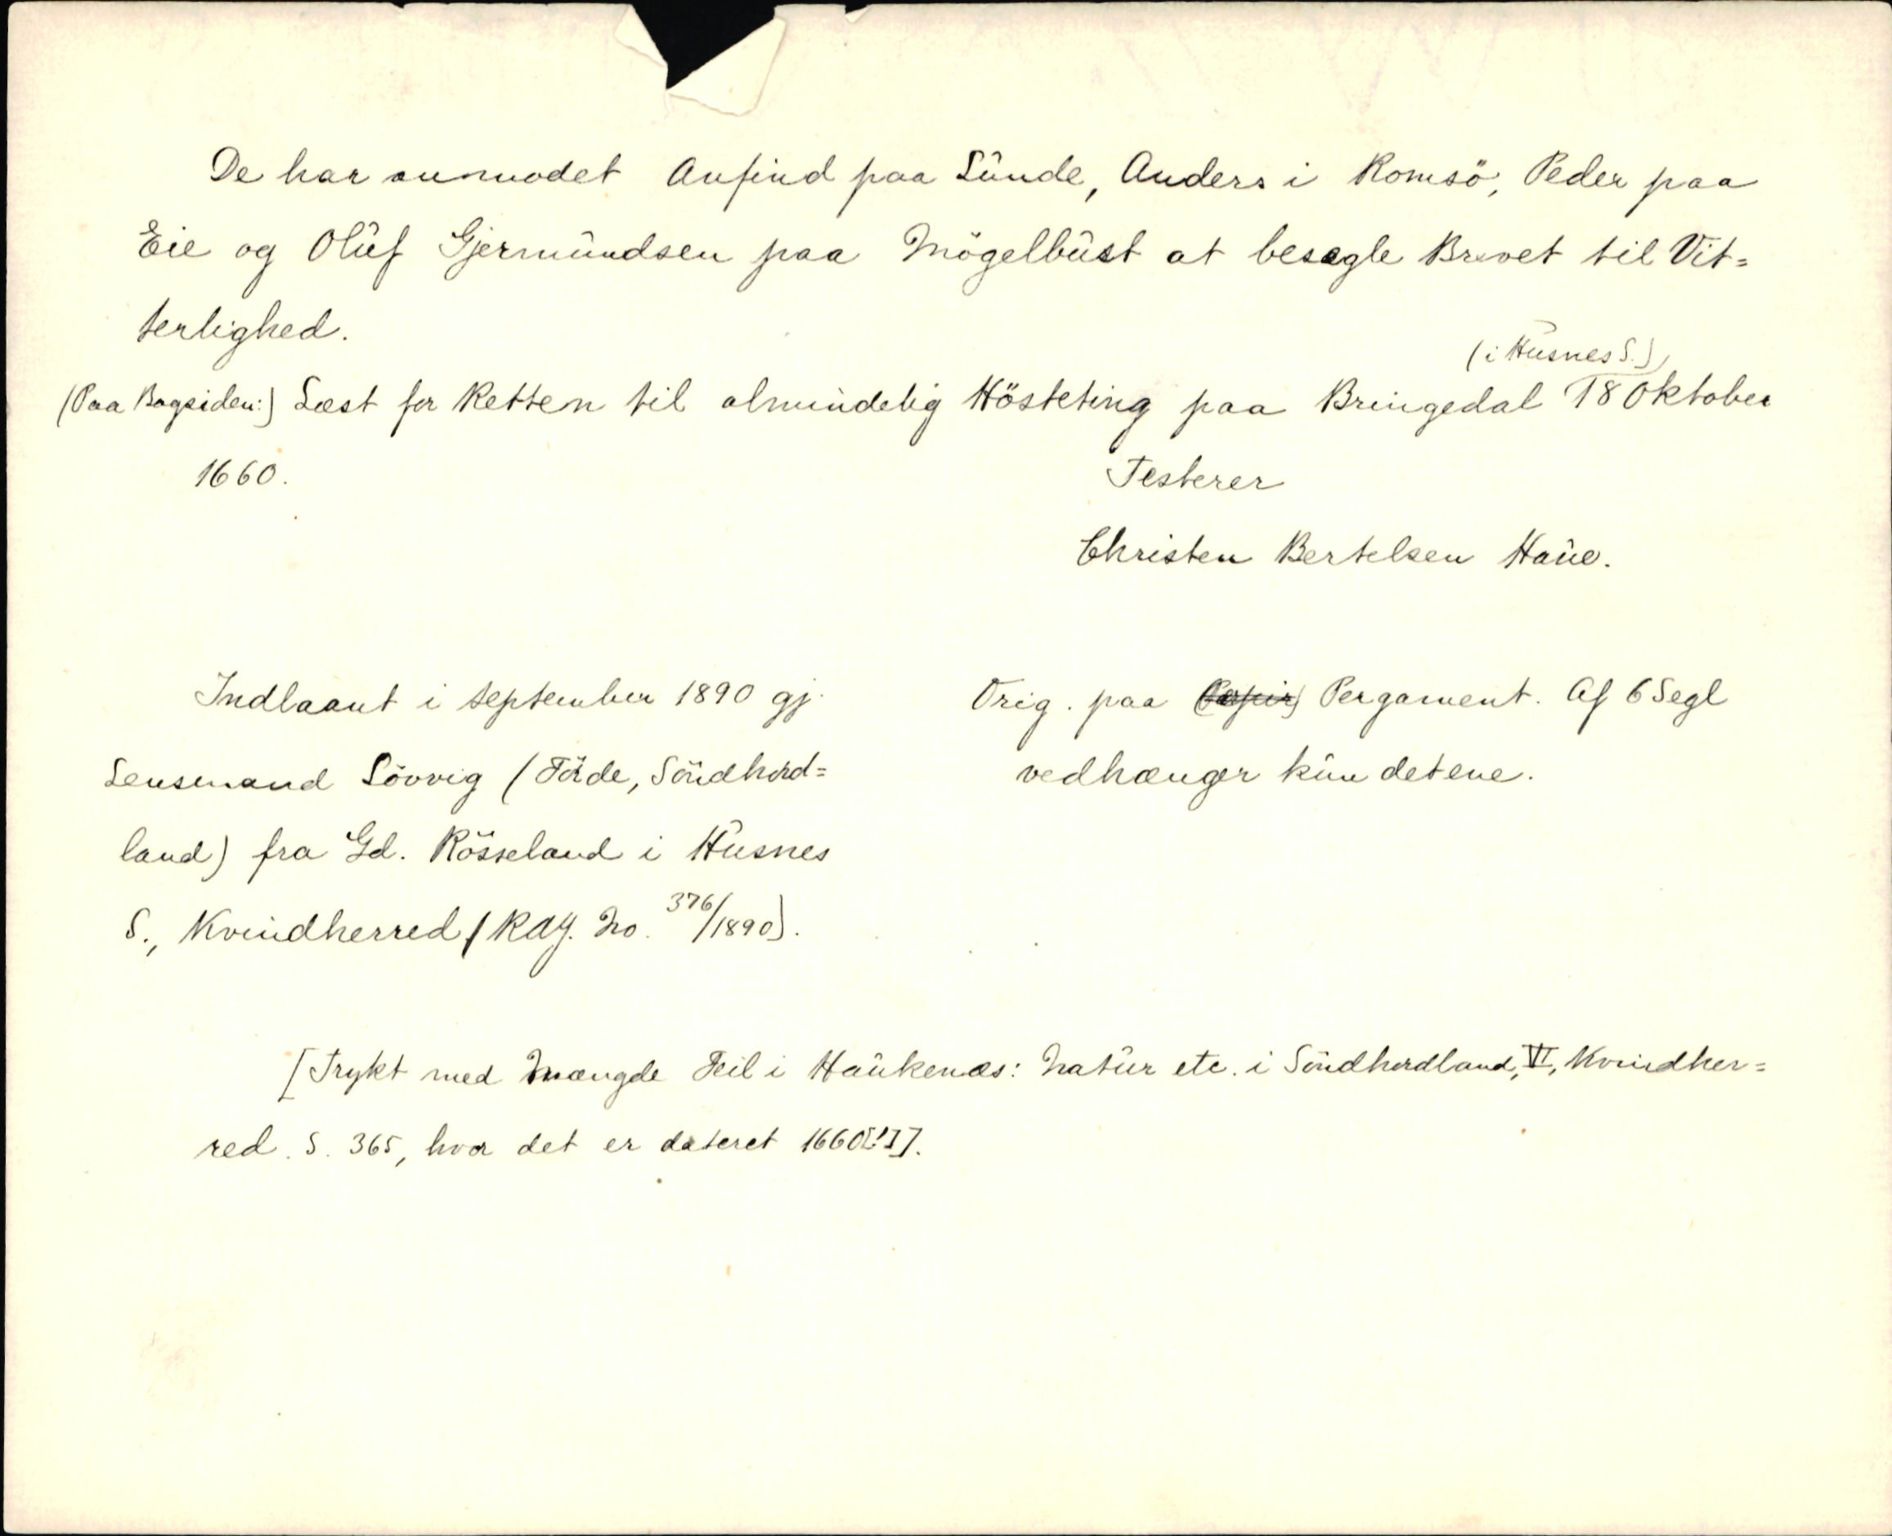 De har anmodet Anfind paa Sunde, Anders i Romsö, Peder paa
Eie og Oluf Gjermundsen paa Mögelbust at besegle Brevet til Vit=
terlighed.
(i Husnes S.)
(Paa Bagsiden:) Læst for Retten til almindelig Hösteting paa Bringedal 18 Oktober
1660.
Testerer
Christen Bertelsen Haue.
Indlaant i September 1890 gj.
Lensmand Lövvig (Före, Söndhord=
land) fra Gd. Rösseland i Husnes
S., Kvindherred (RAJ. No. 376/1890).
Orig. paa (Papir) Pergament. Af 6 Segl
vedhænger kun det ene.
[Trykt med Mængde Feil i Haukenæs: Natur etc. i Söndhordland, VI, Kvindher=
red. S. 365, hvor det er dateret 1660[!]].